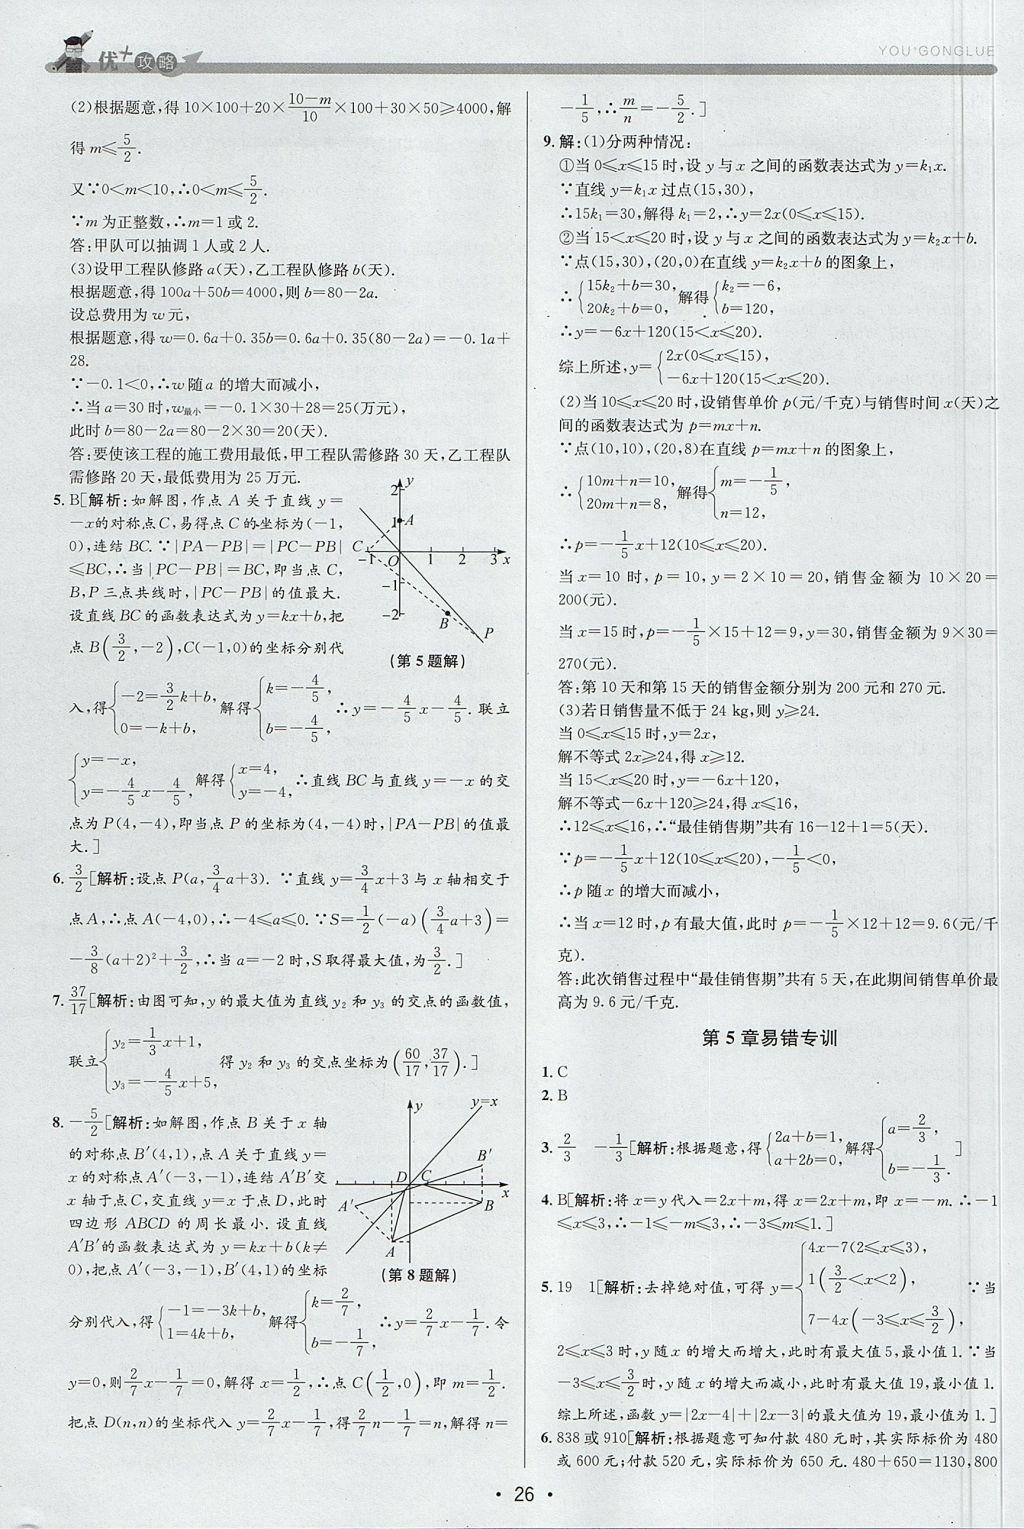 优+攻略
YOU+GONGLUE
(2)根据题意,得10×100+20×\frac{10-m}{10}×100+30×50≥4000,解
得m≤\frac{5}{2}.
又∵0<m<10,∴0<m≤\frac{5}{2}.
∵m为正整数,∴m=1或2.
答:甲队可以抽调1人或2人.
(3)设甲工程队修路a(天),乙工程队修路b(天).
根据题意,得100a+50b=4000,则b=80-2a.
设总费用为w元,
根据题意,得w=0.6a+0.35b=0.6a+0.35(80-2a)=-0.1a+
28.
∵-0.1<0,∴w随a的增大而减小,
∴当a=30时,w最小=-0.1×30+28=25(万元),
此时b=80-2a=80-2×30=20(天).
答:要使该工程的施工费用最低,甲工程队需修路30天,乙工程队
需修路20天,最低费用为25万元.
5. B[解析:如解图,作点A关于直线y=
-x的对称点C,易得点C的坐标为(-1,
0),连结BC.∵|PA-PB|=|PC-PB|
≤BC,∴当|PC-PB|=BC,即当点C,
B,P三点共线时,|PC-PB|的值最大.
设直线BC的函数表达式为y=kx+b,把
点B(\frac{3}{2},-2),C(-1,0)的坐标分别代
y
2
1
A
C
-1
O
1
2
3
x
-1
-2
B
P
(第5题解)
入,得{-2=\frac{3}{2}k+b, 0=-k+b, 解得{k=-\frac{4}{5}, b=-\frac{4}{5}, ∴y=-\frac{4}{5}x-\frac{4}{5}.联立
{y=-x, y=-\frac{4}{5}x-\frac{4}{5}, 解得{x=4, y=-4, ∴直线BC与直线y=-x的交
点为P(4,-4),即当点P的坐标为(4,-4)时,|PA-PB|的值最
大.]
6. \frac{3}{2}[解析:设点P(a,\frac{3}{4}a+3).∵直线y=\frac{3}{4}x+3与x轴相交于
点A,∴点A(-4,0),∴-4≤a≤0.∵S=\frac{1}{2}(-a)(\frac{3}{4}a+3)=
-\frac{3}{8}(a+2)²+\frac{3}{2},∴当a=-2时,S取得最大值,为\frac{3}{2}.]
7. \frac{37}{17}[解析:由图可知,y的最大值为直线y₂和y₃的交点的函数值,
联立{y₂=\frac{1}{3}x+1, y₃=-\frac{4}{5}x+5, 得y₂和y₃的交点坐标为(\frac{60}{17},\frac{37}{17}).]
8. -\frac{5}{2}[解析:如解图,作点B关于x轴
的对称点B′(4,1),点A关于直线y=
x的对称点A′(-3,-1),连结A′B′交
x轴于点C,交直线y=x于点D,此时
四边形ABCD的周长最小.设直线
A′B′的函数表达式为y=kx+b(k≠
0),把点A′(-3,-1),B′(4,1)的坐标
y
y=x
B′
D
C
x
A′
B
A
(第8题解)
分别代入,得{-1=-3k+b, 1=4k+b, 解得{k=\frac{2}{7}, b=-\frac{1}{7}, ∴y=\frac{2}{7}x-\frac{1}{7}.令
y=0,则\frac{2}{7}x-\frac{1}{7}=0,解得x=\frac{1}{2},∴点C(\frac{1}{2},0),即m=\frac{1}{2}.
把点D(n,n)的坐标代入y=\frac{2}{7}x-\frac{1}{7},得\frac{2}{7}n-\frac{1}{7}=n,解得n=
-\frac{1}{5},∴\frac{m}{n}=-\frac{5}{2}.]
9. 解:(1)分两种情况:
①当0≤x≤15时,设y与x之间的函数表达式为y=k₁x.
∵直线y=k₁x过点(15,30),
∴15k₁=30,解得k₁=2,∴y=2x(0≤x≤15).
②当15<x≤20时,设y与x之间的函数表达式为y=k₂x+b.
∵点(15,30),(20,0)在直线y=k₂x+b的图象上,
∴{15k₂+b=30, 20k₂+b=0, 解得{k₂=-6, b=120,
∴y=-6x+120(15<x≤20).
综上所述,y={2x(0≤x≤15), -6x+120(15<x≤20).
(2)当10≤x≤20时,设销售单价p(元/千克)与销售时间x(天)之
间的函数表达式为p=mx+n.
∵点(10,10),(20,8)在直线p=mx+n的图象上,
∴{10m+n=10, 20m+n=8, 解得{m=-\frac{1}{5}, n=12,
∴p=-\frac{1}{5}x+12(10≤x≤20).
当x=10时,p=10,y=2×10=20,销售金额为10×20=
200(元).
当x=15时,p=-\frac{1}{5}×15+12=9,y=30,销售金额为9×30=
270(元).
答:第10天和第15天的销售金额分别为200元和270元.
(3)若日销售量不低于24 kg,则y≥24.
当0≤x≤15时,y=2x,
解不等式2x≥24,得x≥12.
当15<x≤20时,y=-6x+120,
解不等式-6x+120≥24,得x≤16,
∴12≤x≤16,∴“最佳销售期”共有16-12+1=5(天).
∵p=-\frac{1}{5}x+12(10≤x≤20),-\frac{1}{5}<0,
∴p随x的增大而减小,
∴当x=12时,p有最大值,此时p=-\frac{1}{5}×12+12=9.6(元/千
克).
答:此次销售过程中“最佳销售期”共有5天,在此期间销售单价最
高为9.6元/千克.
第5章易错专训
1. C
2. B
3. \frac{2}{3} -\frac{1}{3}[解析:根据题意,得{2a+b=1, a+2b=0, 解得{a=\frac{2}{3}, b=-\frac{1}{3}.]
4. B[解析:将x=y代入=2x+m,得x=2x+m,即x=-m.∴-1
≤x≤3,∴-1≤-m≤3,∴-3≤m≤1.]
5. 19 1[解析:去掉绝对值,可得y={4x-7(2≤x≤3), 1(\frac{3}{2}<x<2), 7-4x(-3≤x≤\frac{3}{2}), ∵当
2≤x≤3时,y随x的增大而增大,此时有最大值5,最小值1.∵当
-3≤x≤\frac{3}{2}时,y随x的增大而减小,此时有最大值19,最小值1.
综上所述,函数y=|2x-4|+|2x-3|的最大值为19,最小值为1.]
6. 838或910[解析:根据题意可知付款480元时,其实际标价为480
或600元;付款520元,实际标价为650元.480+650=1130,800
· 26 ·